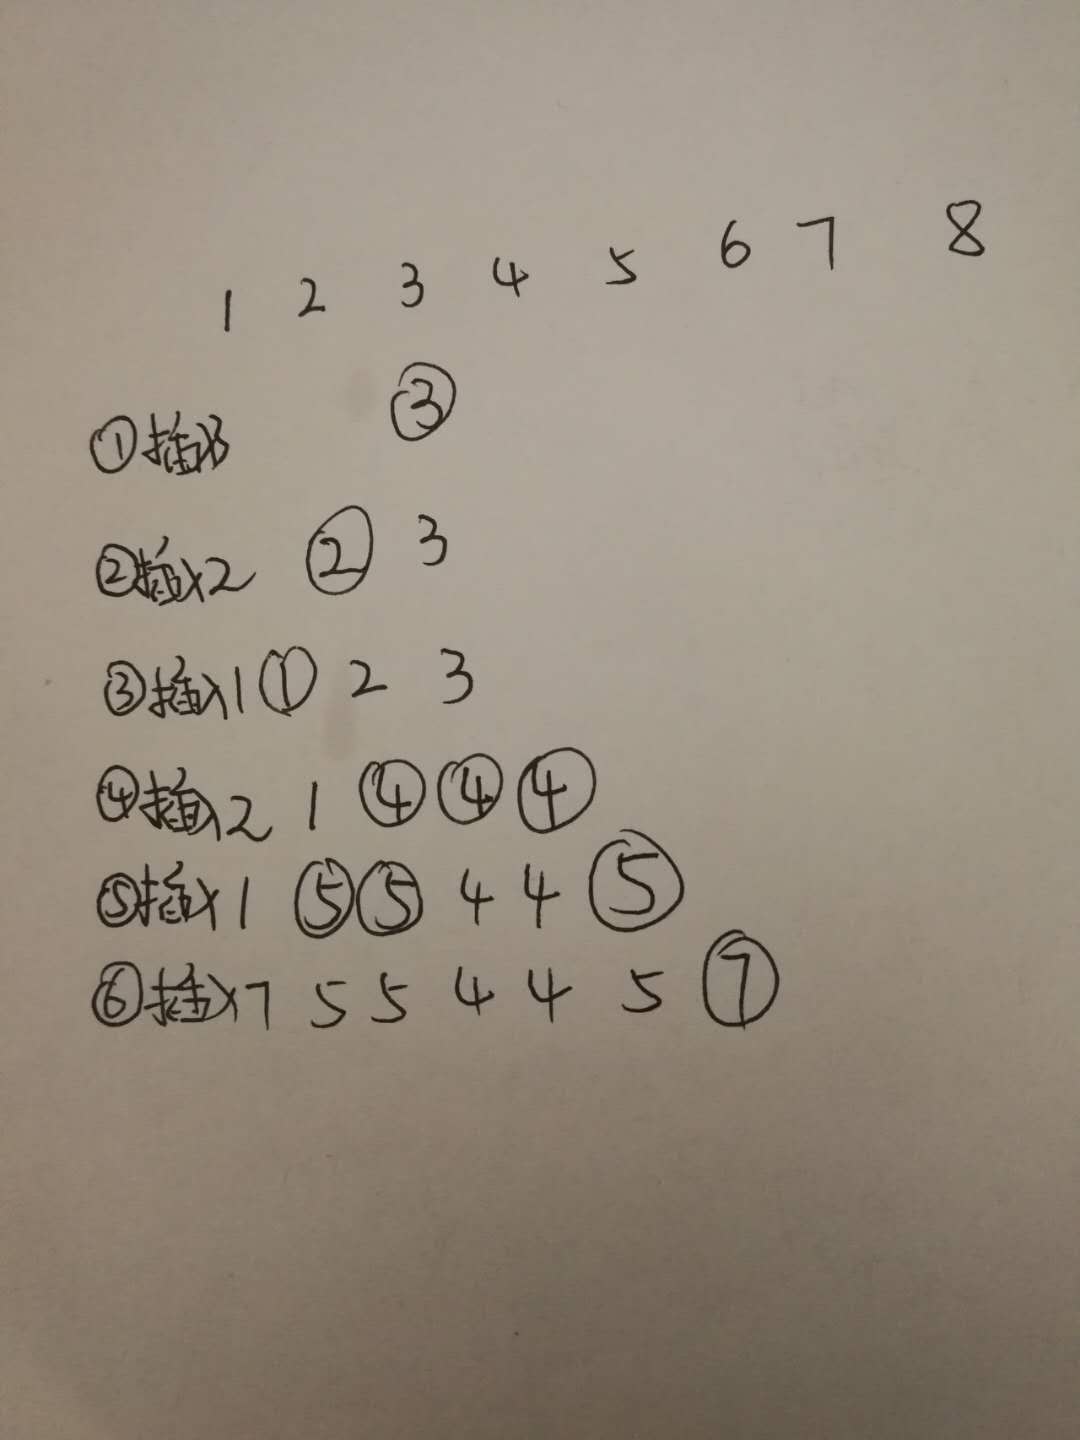 1 2 3 4 5 6 7 8
①插入3 ③
②插入2 ② 3
③插入1 ① 2 3
④插入2 1 ④ ④ ④
⑤插入1 ⑤ ⑤ 4 4 ⑤
⑥插入7 5 5 4 4 5 ⑦